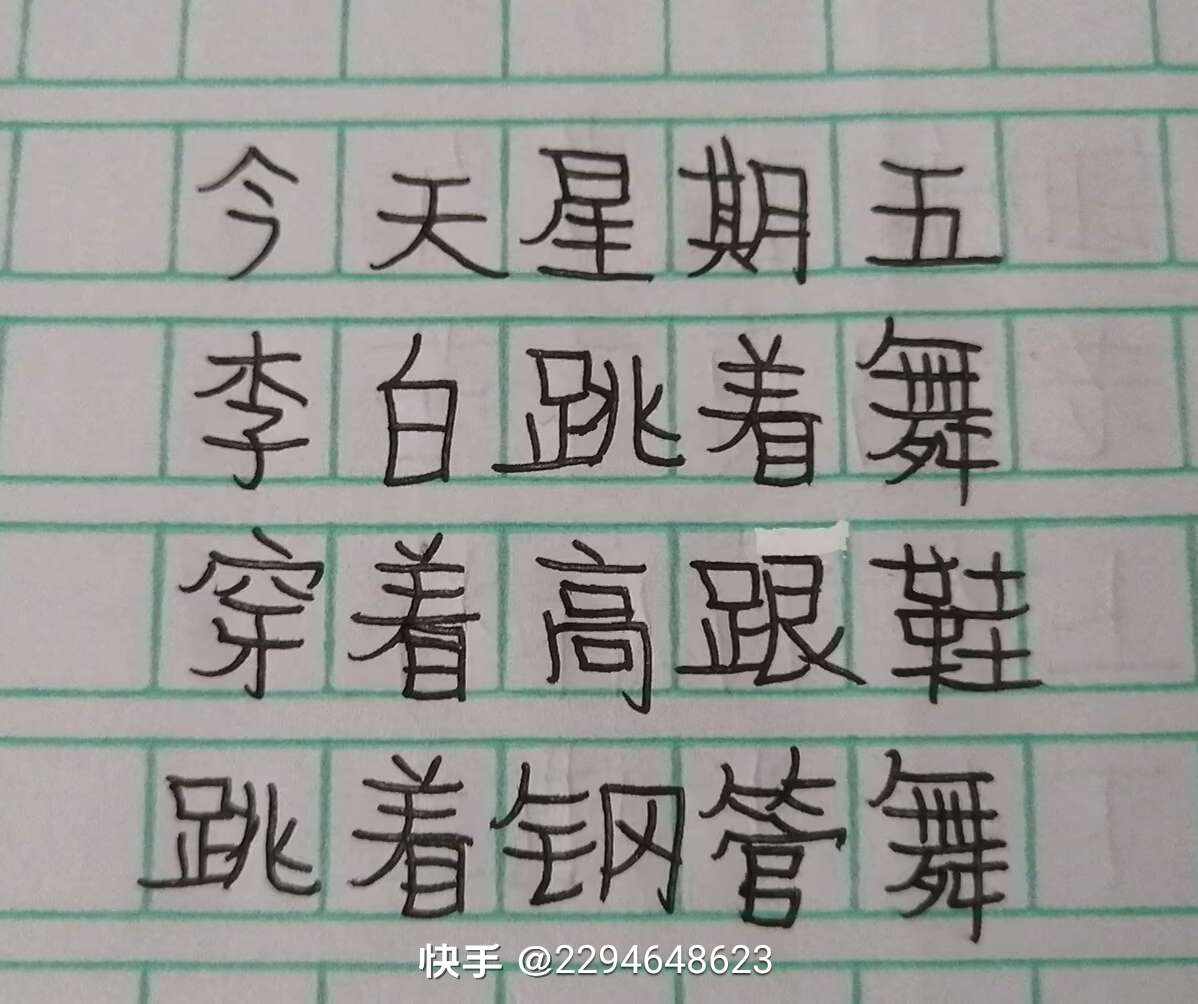 今天星期五
李白跳着舞
穿着高跟鞋
跳着钢管舞
快手 @2294648623